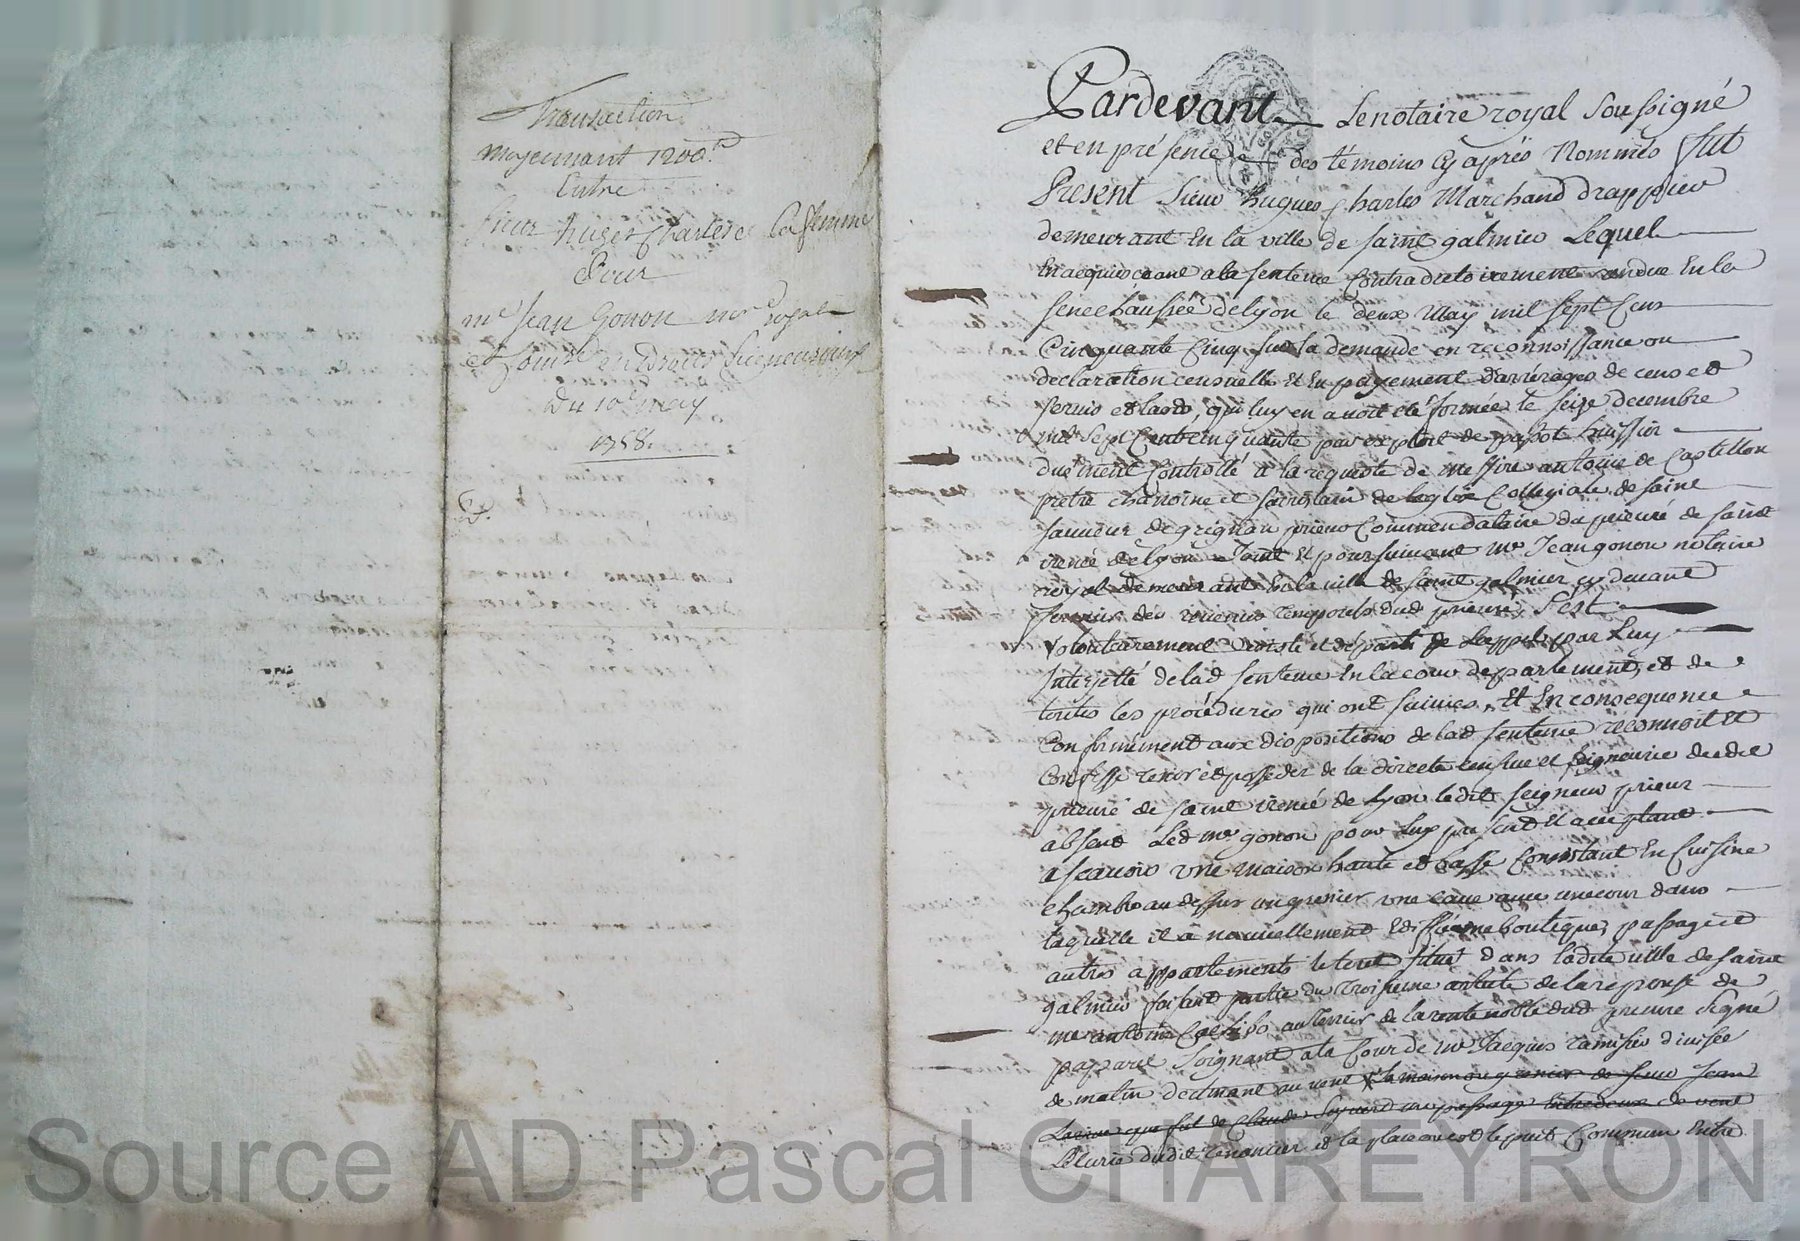 Transaction
moyennant 1200#
Entre
sieur huges Charles et sa femme
Pour
me Jean Gonon nore royal
et
Du 10e may
1758.
Pardevant Le notaire royal soussigné
et en présence des témoins cy après Nommés fut
Present sieur hugues Charles Marchand drappier
demeurant En la ville de saint galmier Lequel
En acquiesceant a la sentence Contradictoirement rendue En la
senechaussée de lyon le deux May mil sept Cens
Cinquante Cinq sur la demande en reconnoissance ou
declaration censuelle Et En payement d'arrérages de cens et
servis et lards, qui luy en avoit eté formée le seize decembre
mil sept Cent cinquante par exploit de papot huissier
duëment Controllé a la requete de messire antoine de Castellon
pretre chanoine et sacristain de leglise Collegiale de saint
sauveur de grignan prieur Commendataire du prieuré de saint
irenée de lyon Joint Et poursuivant me Jean gonon notaire
royal demeurant En la ville de saint galmier cy devant
fermier des revenus temporels dud prieuré S'est
Volontairement desisté et départi de Lappel par Luy
Interjetté de lad sentence En la cour de parlement, et de
toutes les procédures qui ont suivies, Et En consequence
Conformement aux dispositions de lad sentence reconnoit et
Confesse tenir et posseder de la directe censive et seigneurie dudit
prieuré de saint irenée de lyon ledit seigneur prieur
absent Led me gonon pour Luy present Et acceptant
a scavoir une maison haute et basse Consistant En Cuisine
chambre au dessus un grenier une cave avec une cour dans
laquelle il a nouvellement Edifié une boutique, passage et
autres appartements le tout situé dans ladite ville de saint
galmier faisant partie du troisieme article de la réponse de
me antoine au terrier de la rente noble dud prieuré signé
paparel Joignant a la Cour de me Jacques ramisier divisée
de matin declinant au vent la maison ou grenier de sieur Jean
que fut de Claude un passage Entredeux de vent
L'écurie dudit tenancier et la place ou est le puit Commun Entre
Source AD Pascal CHAREYRON